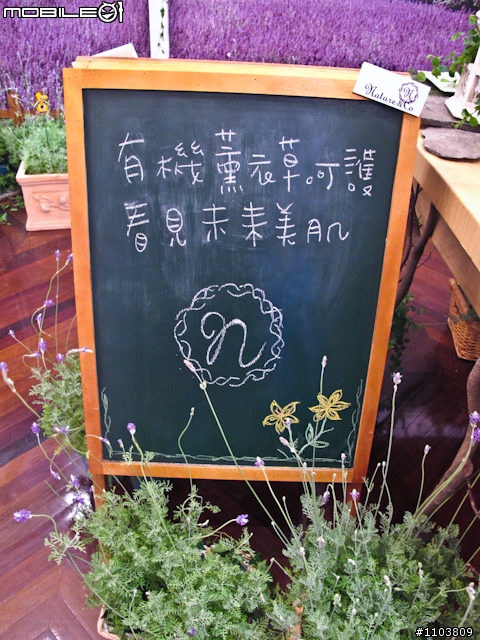 MOBILE01
Nature&Co
有機薰衣草呵護
看見未來美肌
n
#1103809